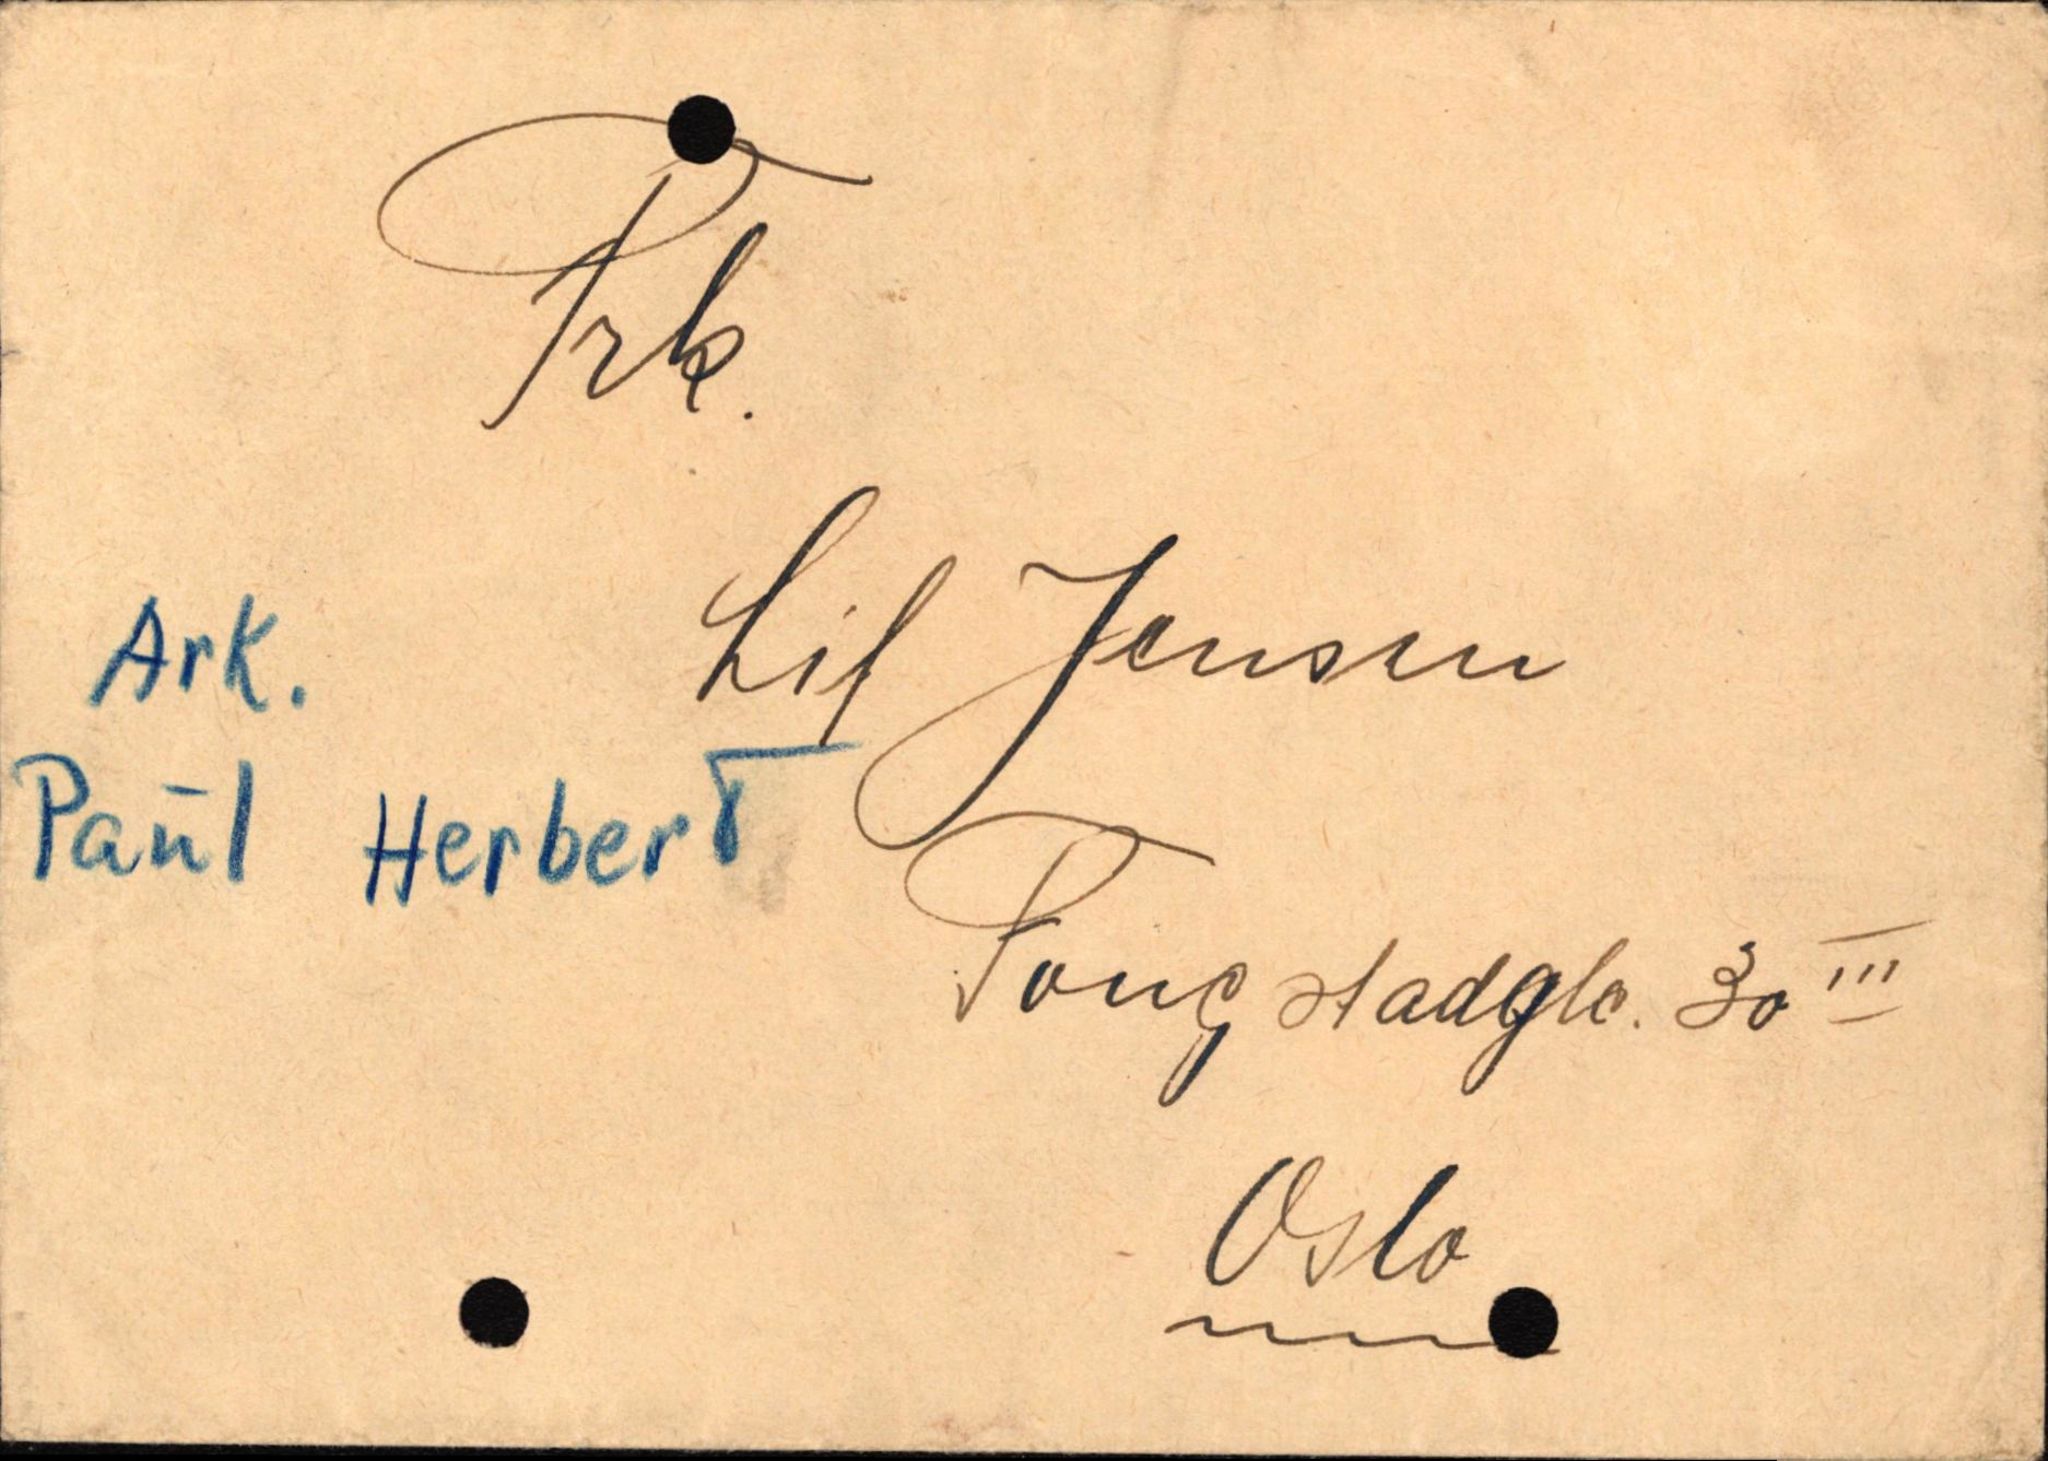 Frk.
Lif Jensen
Ark.
Paul Herbert
Tongstadglo. 30 III
Oslo